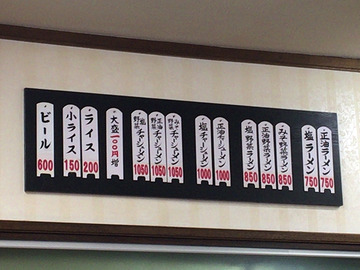 正油ラーメン 750
塩ラーメン 750
みそ野菜ラーメン 850
正油野菜ラーメン 850
塩野菜ラーメン 850
正油チャーシューメン 1000
塩チャーシューメン 1000
みそ野菜チャーシューメン 1050
正油野菜チャーシューメン 1050
塩野菜チャーシューメン 1050
大盛一〇〇円増
ライス 200
小ライス 150
ビール 600